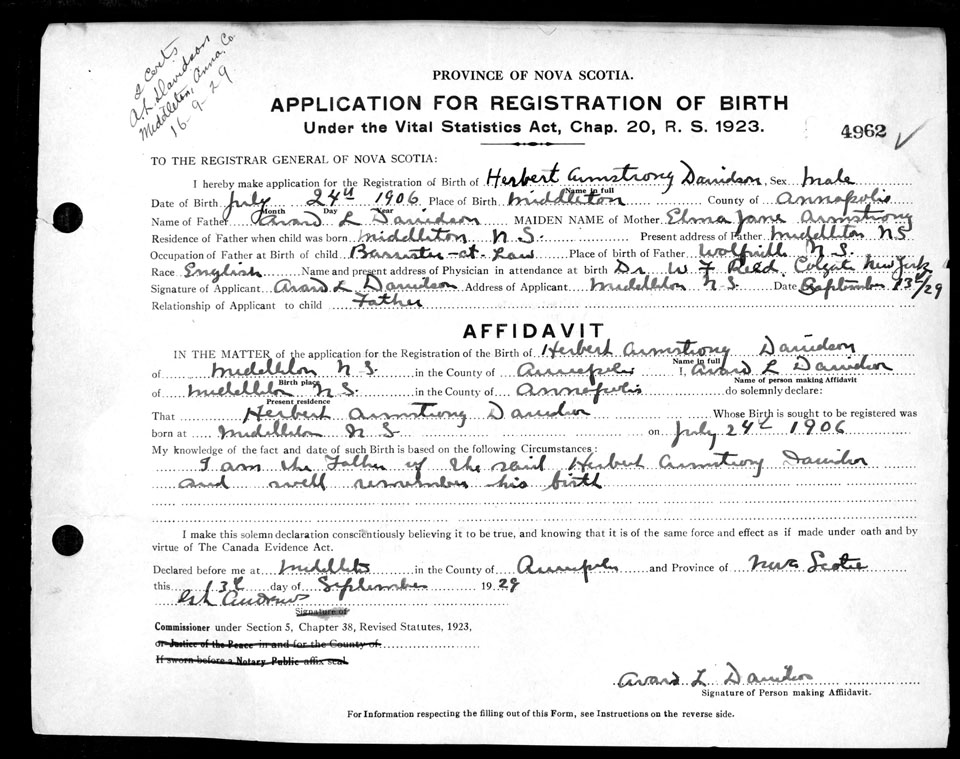 2 Certs
A. L. Davidson
Middleton, Anna. Co.
16-9-29
PROVINCE OF NOVA SCOTIA.
APPLICATION FOR REGISTRATION OF BIRTH
Under the Vital Statistics Act, Chap. 20, R. S. 1923.
4962
TO THE REGISTRAR GENERAL OF NOVA SCOTIA:
I hereby make application for the Registration of Birth of Herbert Armstrong Davidson, Sex Male
Name in full
Date of Birth July 24th 1906 Place of Birth Middleton County of Annapolis
Month Day Year
Name of Father Avard L Davidson MAIDEN NAME of Mother Elma Jane Armstrong
Residence of Father when child was born Middleton N S. Present address of Father Middleton NS
Occupation of Father at Birth of child Barrister-at-Law Place of birth of Father Wolfville N S.
Race English Name and present address of Physician in attendance at birth Dr. W F Read, New York
Signature of Applicant Avard L Davidson Address of Applicant Middleton N S. Date September 13th/29
Relationship of Applicant to child Father
AFFIDAVIT
IN THE MATTER of the application for the Registration of the Birth of Herbert Armstrong Davidson
Name in full
of Middleton N S. in the County of Annapolis I, Avard L Davidson
Birth place Name of person making Affidavit
of Middleton N S. in the County of Annapolis do solemnly declare:
Present residence
That Herbert Armstrong Davidson Whose Birth is sought to be registered was
born at Middleton N S. on July 24th 1906
My knowledge of the fact and date of such Birth is based on the following Circumstances:
I am the Father of the said Herbert Armstrong Davidson
and well remember his birth
I make this solemn declaration conscientiously believing it to be true, and knowing that it is of the same force and effect as if made under oath and by
virtue of The Canada Evidence Act.
Declared before me at Middleton in the County of Annapolis and Province of Nova Scotia
this 13th day of September 1929
Andrews
Signature of
Commissioner under Section 5, Chapter 38, Revised Statutes, 1923,
or Justice of the Peace in and for the County of
If sworn before a Notary Public affix seal
Avard L Davidson
Signature of Person making Affidavit.
For Information respecting the filling out of this Form, see Instructions on the reverse side.